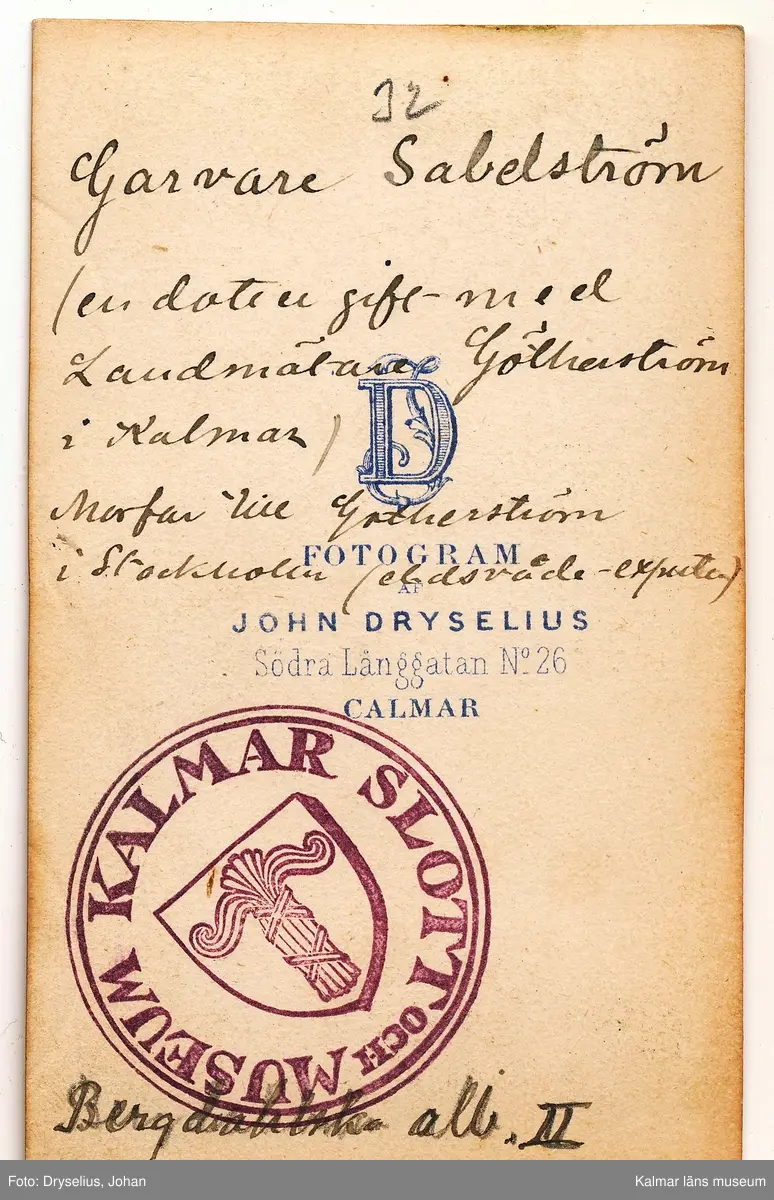 32
Garvare Sabelström
(en dotter gift med
Landmätare Götherström
i Kalmar)
D
Morfar till Götherström
i Stockholm (eldsvåde-experten)
FOTOGRAM
AF
JOHN DRYSELIUS
Södra Långgatan No 26
CALMAR
KALMAR SLOTT OCH MUSEUM
Bergdahlska alb. II
Foto: Dryselius, Johan
Kalmar läns museum